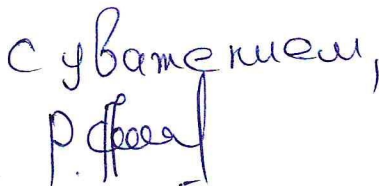 с уважением,
Р.